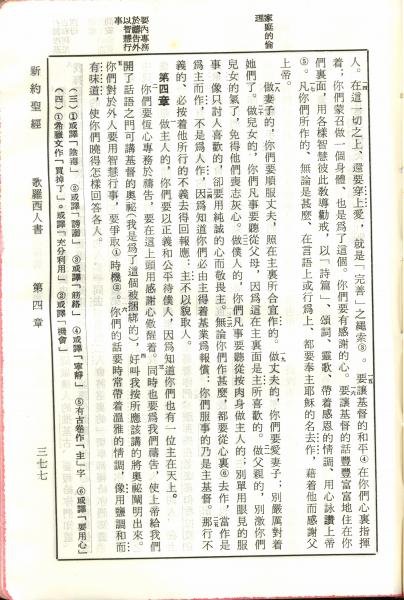 家庭的倫理
人。在這一切之上、還要穿上愛，就是「完善」之繩索③。要讓基督的和平④在你們心裏指揮
着；你們蒙召做一個身體、也是爲了這個。你們要有感謝的心。要讓基督的話豐豐富富地住在你
們裏面，用各樣智慧彼此教導勸戒，以「詩篇」、頌詞、靈歌、帶着感恩的情調、用心詠讚上帝
⑤。凡你們所作的、無論是甚麼、在言語上或行爲上、都要奉主耶穌的名去作，藉着他而感謝父
上帝。
做妻子的，你們要順服丈夫，照在主裏所合宜作的。做丈夫的，你們要愛妻子；別嚴厲對着
她們了。做兒女的，你們凡事要聽從父母，因爲這在主裏面是主所喜歡的。做父親的，別激你們
兒女的氣了，免得他們喪志灰心。做僕人的，你們凡事要聽從按肉身做主人的；別單用眼見的服
事、像只討人喜歡的，卻要用純誠的心而敬畏主。無論你們作甚麼，都要從心裏⑥去作，當作是
爲主而作，不是爲人作，因爲知道你們必由主得着基業爲報償；你們服事的乃是主基督。那行不
義的、必按着他所行的不義去得回報應；主不以貌取人。
第四章
做主人的，你們要以正義和公平待僕人，因爲知道你們也有一位主在天上。
要內專務於禱告外以智慧行事
你們要恆心專務於禱告，要在這上頭用感謝心儆醒着。同時也要爲我們禱告，使上帝給我們
開了話語之門可講基督的奧祕(我是爲了這個被捆綁的)，好叫我按所應該講的將奧祕闡明出來。
你們對於外人要用智慧行事，要爭取①時機②。你們的話要時常帶着溫雅的情調，像用鹽調和而
有味道，使你們曉得怎樣回答各人。
(三)①或譯「陰毒」 ②或譯「謗讟」 ③或譯「筋絡」 ④或譯「寧靜」 ⑤有古卷作「主」字 ⑥或譯「要用心」
(四)①希臘文作「買掉了」。或譯「充分利用」 ②或譯「機會」
新約聖經 歌羅西人書 第四章 三七七